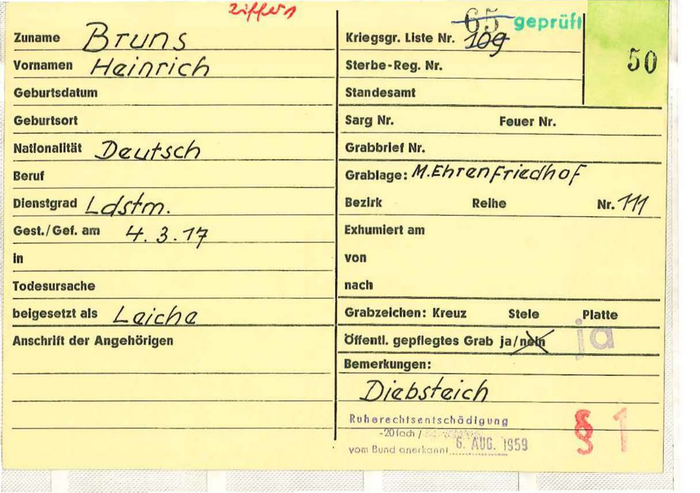 Ziffer 1
65 geprüft
Zuname Bruns
Kriegsgr. Liste Nr. 109
50
Vornamen Heinrich
Sterbe-Reg. Nr.
Geburtsdatum
Standesamt
Geburtsort
Sarg Nr. Feuer Nr.
Nationalität Deutsch
Grabbrief Nr.
Beruf
Grablage: M.Ehrenfriedhof
Dienstgrad Ldstm.
Bezirk Reihe Nr. 111
Gest./Gef. am 4.3.17
Exhumiert am
in
von
Todesursache
nach
beigesetzt als Leiche
Grabzeichen: Kreuz Stele Platte
Anschrift der Angehörigen
Öffentl. gepflegtes Grab ja/nein ja
Bemerkungen:
Diebsteich
Ruherechtsentschädigung
-20fach /
vom Bund anerkannt 6. AUG. 1959
§ 1